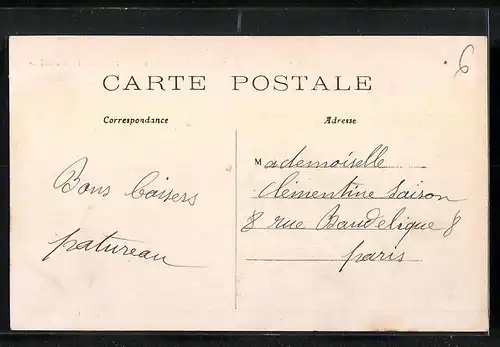 6
CARTE POSTALE
Correspondance
Adresse
Bons baisers
patureau
Mademoiselle
Clémentine Saison
8 rue Baudelique 8
paris